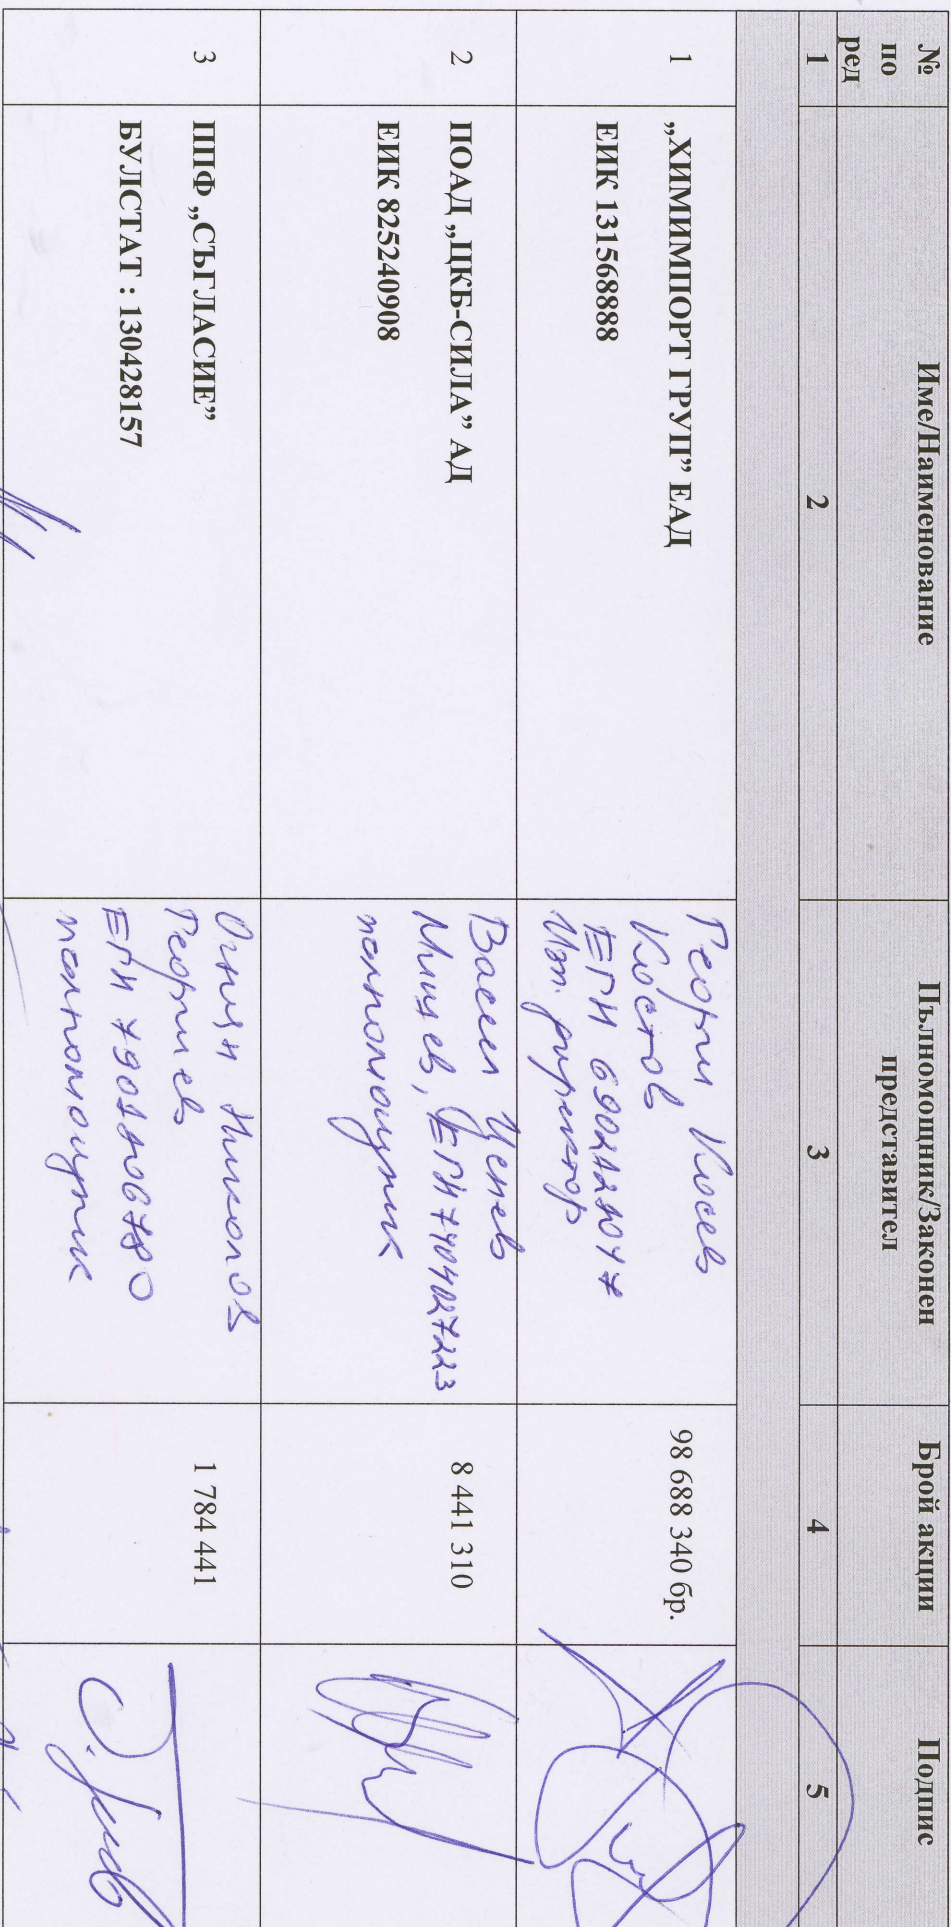 №
по
ред
Име/Наименование
Пълномощник/Законен
представител
Брой акции
Подпис
1
2
3
4
5
1
„ХИМИМПОРТ ГРУП” ЕАД
ЕИК 131568888
Георги Косев
Костов
ЕГН
Изп. директор
98 688 340 бр.
2
ПОАД „ЦКБ-СИЛА” АД
ЕИК 825240908
Васил Ценев
ЕГН
пълномощник
8 441 310
3
ППФ „СЪГЛАСИЕ”
БУЛСТАТ : 130428157
Огнян Николов
Георгиев
ЕГН
пълномощник
1 784 441